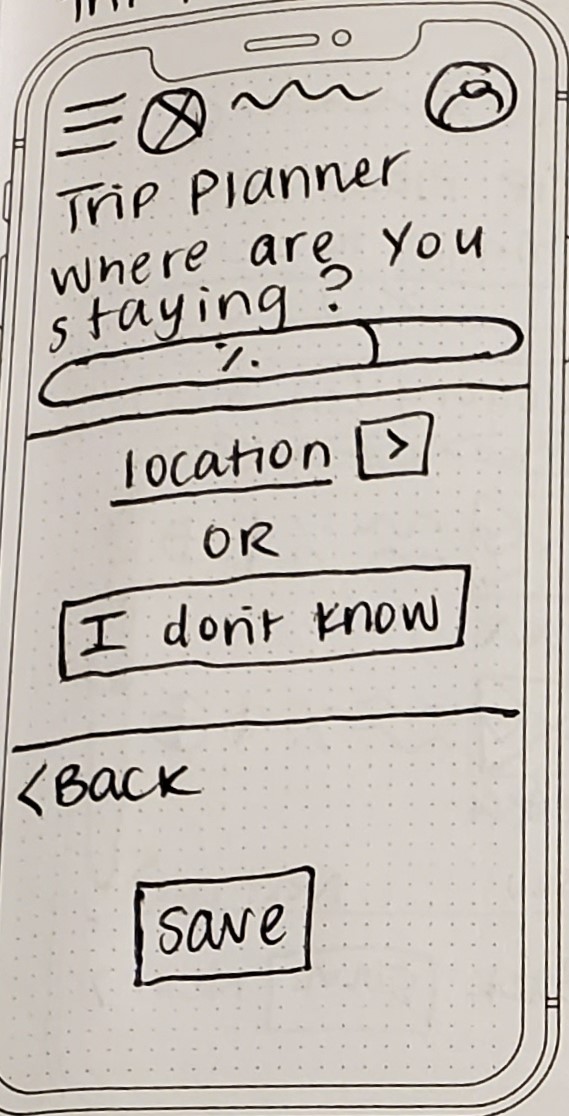 Trip Planner
where are you
staying?
%
location >
OR
I don't know
<Back
save